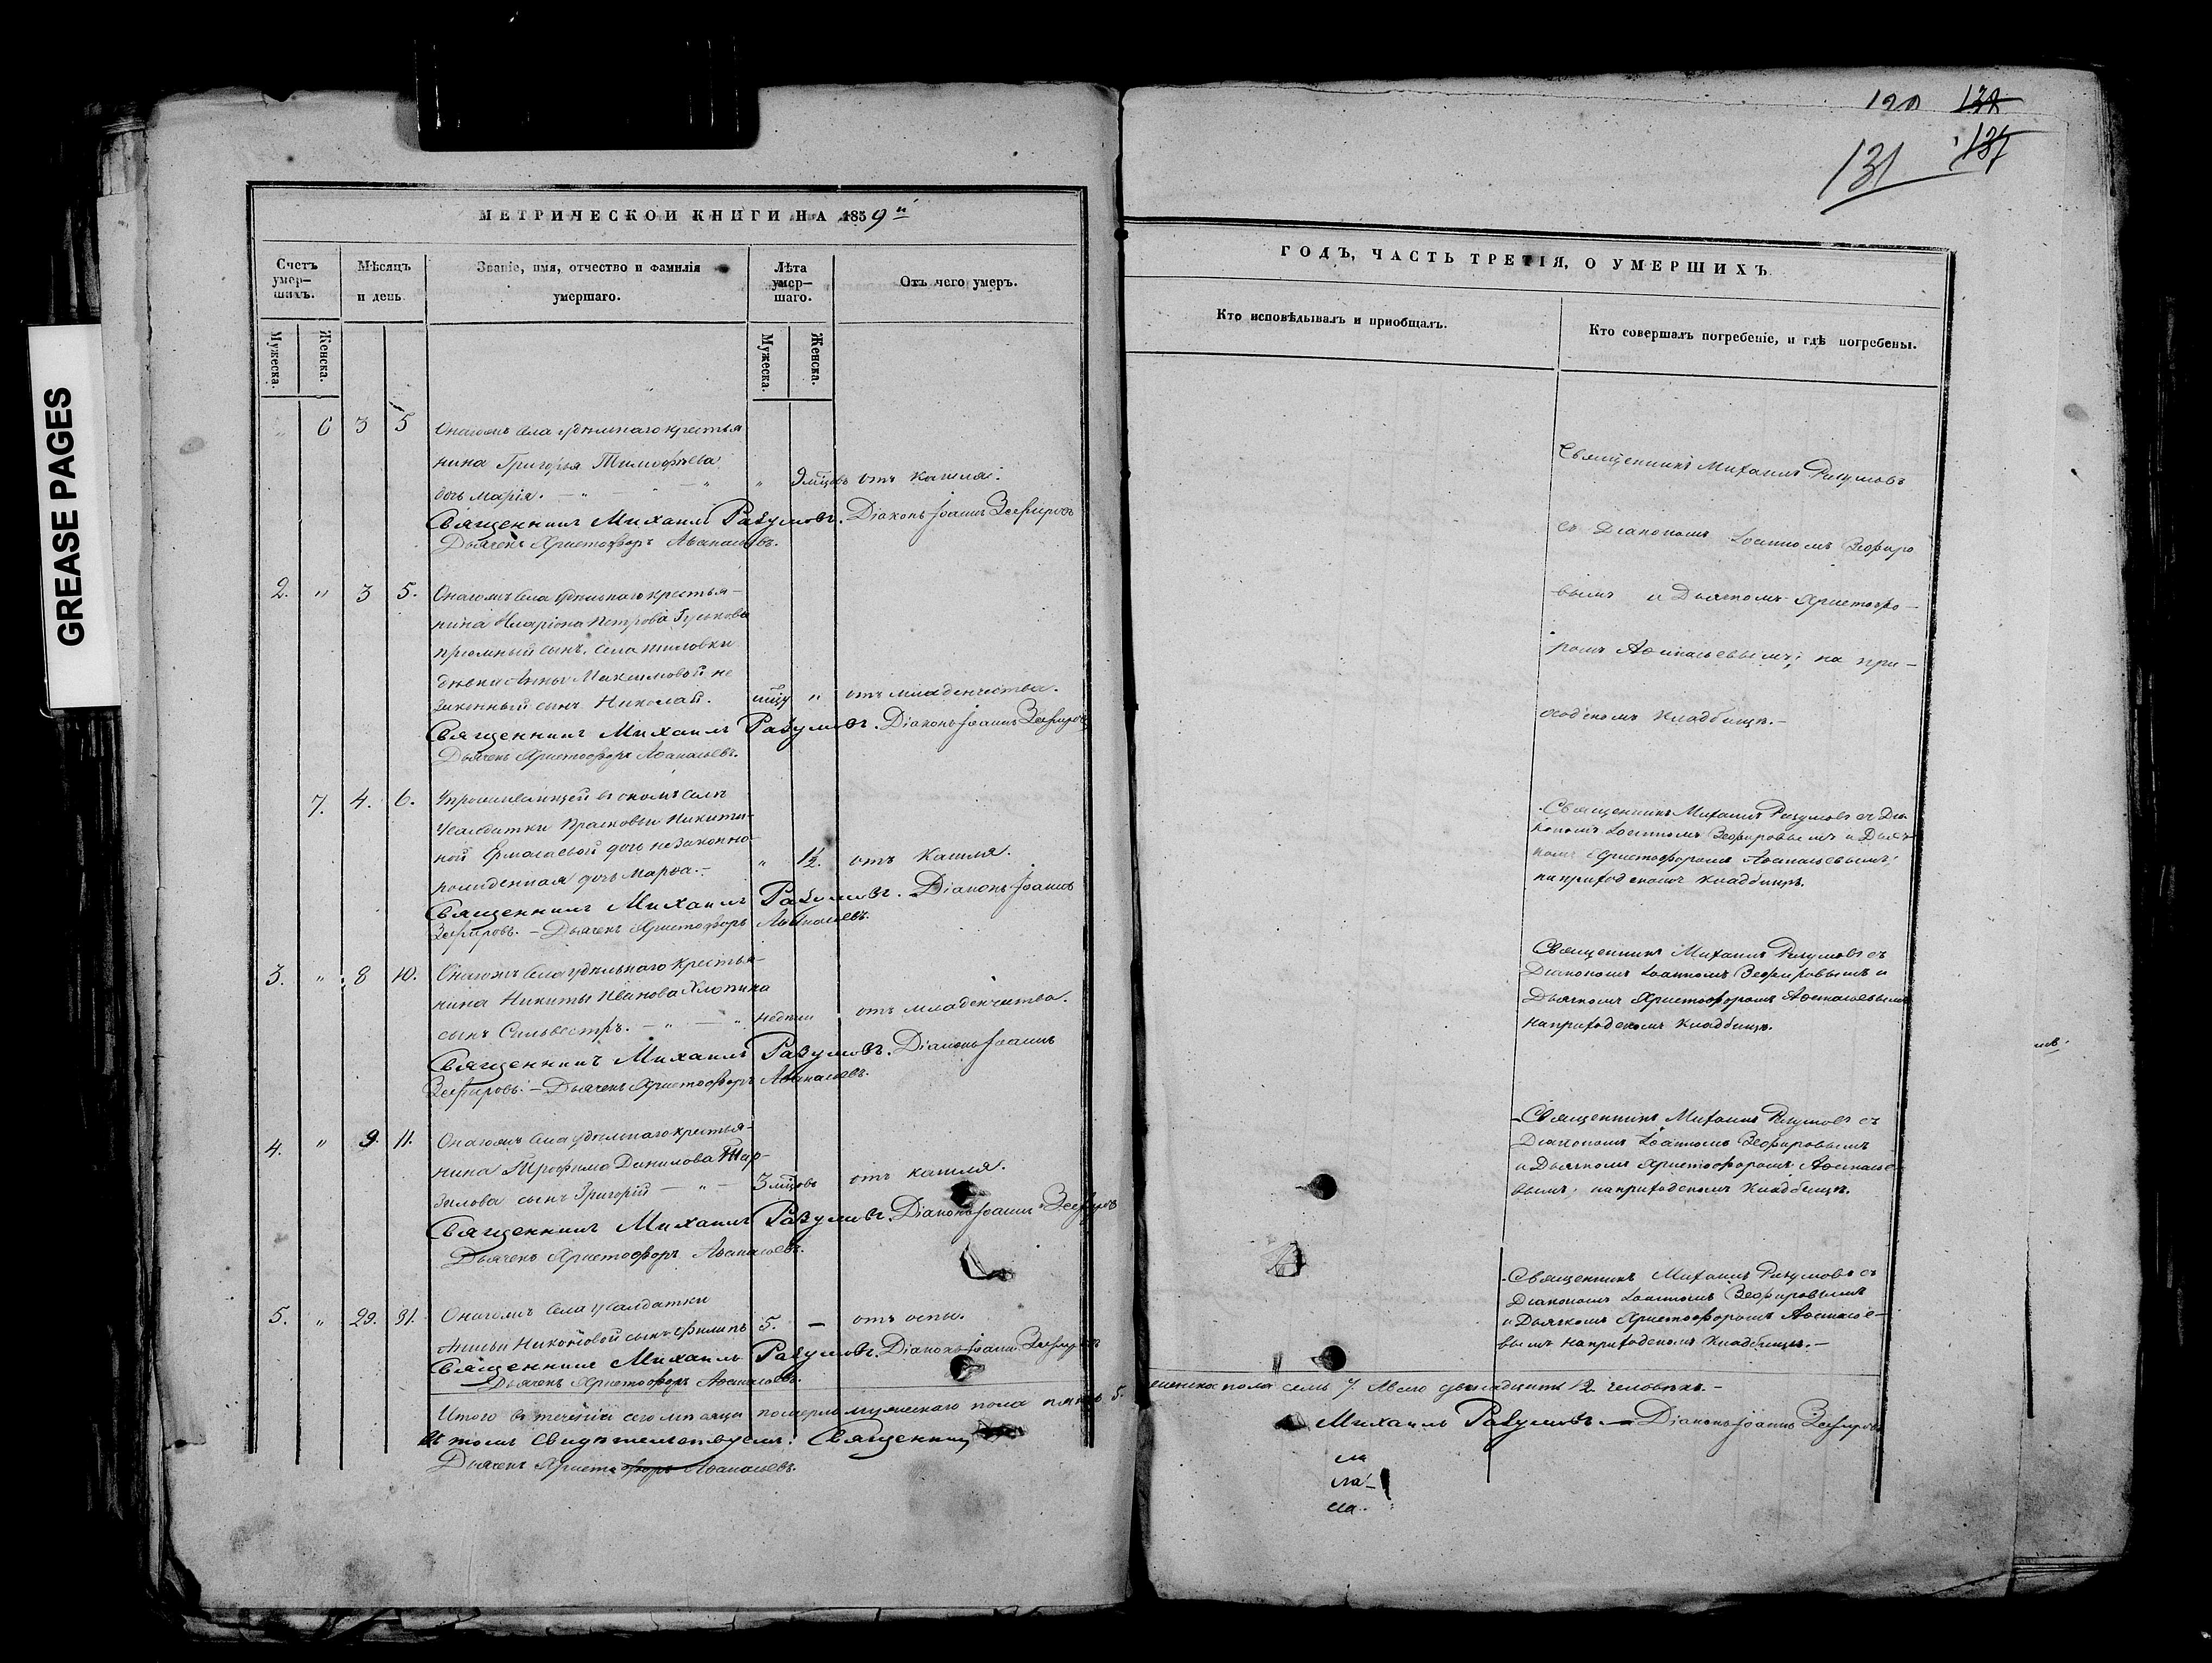 120 132
131 137
GREASE PAGES
МЕТРИЧЕСКОЙ КНИГИ НА 1859й
ГОДЪ, ЧАСТЬ ТРЕТІЯ, О УМЕРШИХЪ
Счетъ умер-шихъ.
Мужеска.
Женска.
Мѣсяцъ и день
Званіе, имя, отчество и фамилія умершаго.
Лѣта умер-шаго.
Мужеска.
Женска.
Отъ чего умеръ.
Кто исповѣдывалъ и пріобщалъ.
Кто совершалъ погребеніе, и гдѣ погребены.
" 6 3 5 Онагожъ села удѣльнаго крестья
нина Григорья Тимофѣева
дочь Марія. " 9 мцовъ отъ кашля.
Священникъ Михаилъ Разумовъ. Діаконъ Іоаннъ Зефировъ
Дьячекъ Христофоръ Аѳанасьевъ.
Священникъ Михаилъ Разумовъ
съ Діакономъ Іоанномъ Зефиро
вымъ и Дьячкомъ Христофо-
ромъ Аѳанасьевымъ; на при-
ходскомъ кладбищѣ.-
2. " 3 5. Онагожъ села удѣльнаго крестья-
нина Иларіона Петрова
пріемный сынъ, села
дѣвки Анны Максимовой не
законный сынъ Николай. " отъ младенчества.
Священникъ Михаилъ Разумовъ. Діаконъ Іоаннъ Зефировъ
Дьячекъ Христофоръ Аѳанасьевъ.
7. 4. 6. Упроживающей въ ономъ селѣ
солдатки Прасковьи Никити-
ной Ермолаевой дочь незаконно-
рожденная дочь Марѳа.- " 1½. отъ кашля.
Священникъ Михаилъ Разумовъ. Діаконъ Іоаннъ
Зефировъ. - Дьячекъ Христофоръ Аѳанасьевъ.
Священникъ Михаилъ Разумовъ съ Діа
кономъ Іоанномъ Зефировымъ и Дьяч-
комъ Христофоромъ Аѳанасьевымъ;
на приходскомъ кладбищѣ.
3. " 8 10. Онагожъ села удѣльнаго крестья-
нина Никиты Иванова Хлопина
сынъ Сильвестръ. - " - недѣли отъ младенчества.
Священникъ Михаилъ Разумовъ. Діаконъ Іоаннъ
Зефировъ. - Дьячекъ Христофоръ Аѳанасьевъ.
Священникъ Михаилъ Разумовъ съ
Діакономъ Іоанномъ Зефировымъ и
Дьячкомъ Христофоромъ Аѳанасьевымъ
на приходскомъ кладбищѣ.
4. " 9. 11. Онагожъ села удѣльнаго крестья-
нина Трофима Данилова
сынъ Григорій - " - 3 мцовъ отъ кашля.
Священникъ Михаилъ Разумовъ. Діаконъ Іоаннъ Зефировъ
Дьячекъ Христофоръ Аѳанасьевъ.
Священникъ Михаилъ Разумовъ съ
Діакономъ Іоанномъ Зефировымъ
и Дьячкомъ Христофоромъ Аѳанасье-
вымъ; на приходскомъ кладбищѣ.
5. " 29. 31. Онагожъ села усолдатки
Никоновой сынъ Филипъ 5. - отъ оспы.
Священникъ Михаилъ Разумовъ. Діаконъ Іоаннъ Зефировъ
Дьячекъ Христофоръ Аѳанасьевъ.
Священникъ Михаилъ Разумовъ съ
Діакономъ Іоанномъ Зефировымъ
и Дьячкомъ Христофоромъ Аѳанасье-
вымъ на приходскомъ кладбищѣ.-
Итого въ теченіи сего мѣсяца померло мужескаго пола пять 5. женска пола семь 7. Всего двѣнадцать 12. человѣкъ.-
Въ томъ свидѣтельствуемъ: Священникъ Михаилъ Разумовъ. - Діаконъ Іоаннъ Зефировъ
Дьячекъ Христофоръ Аѳанасьевъ.